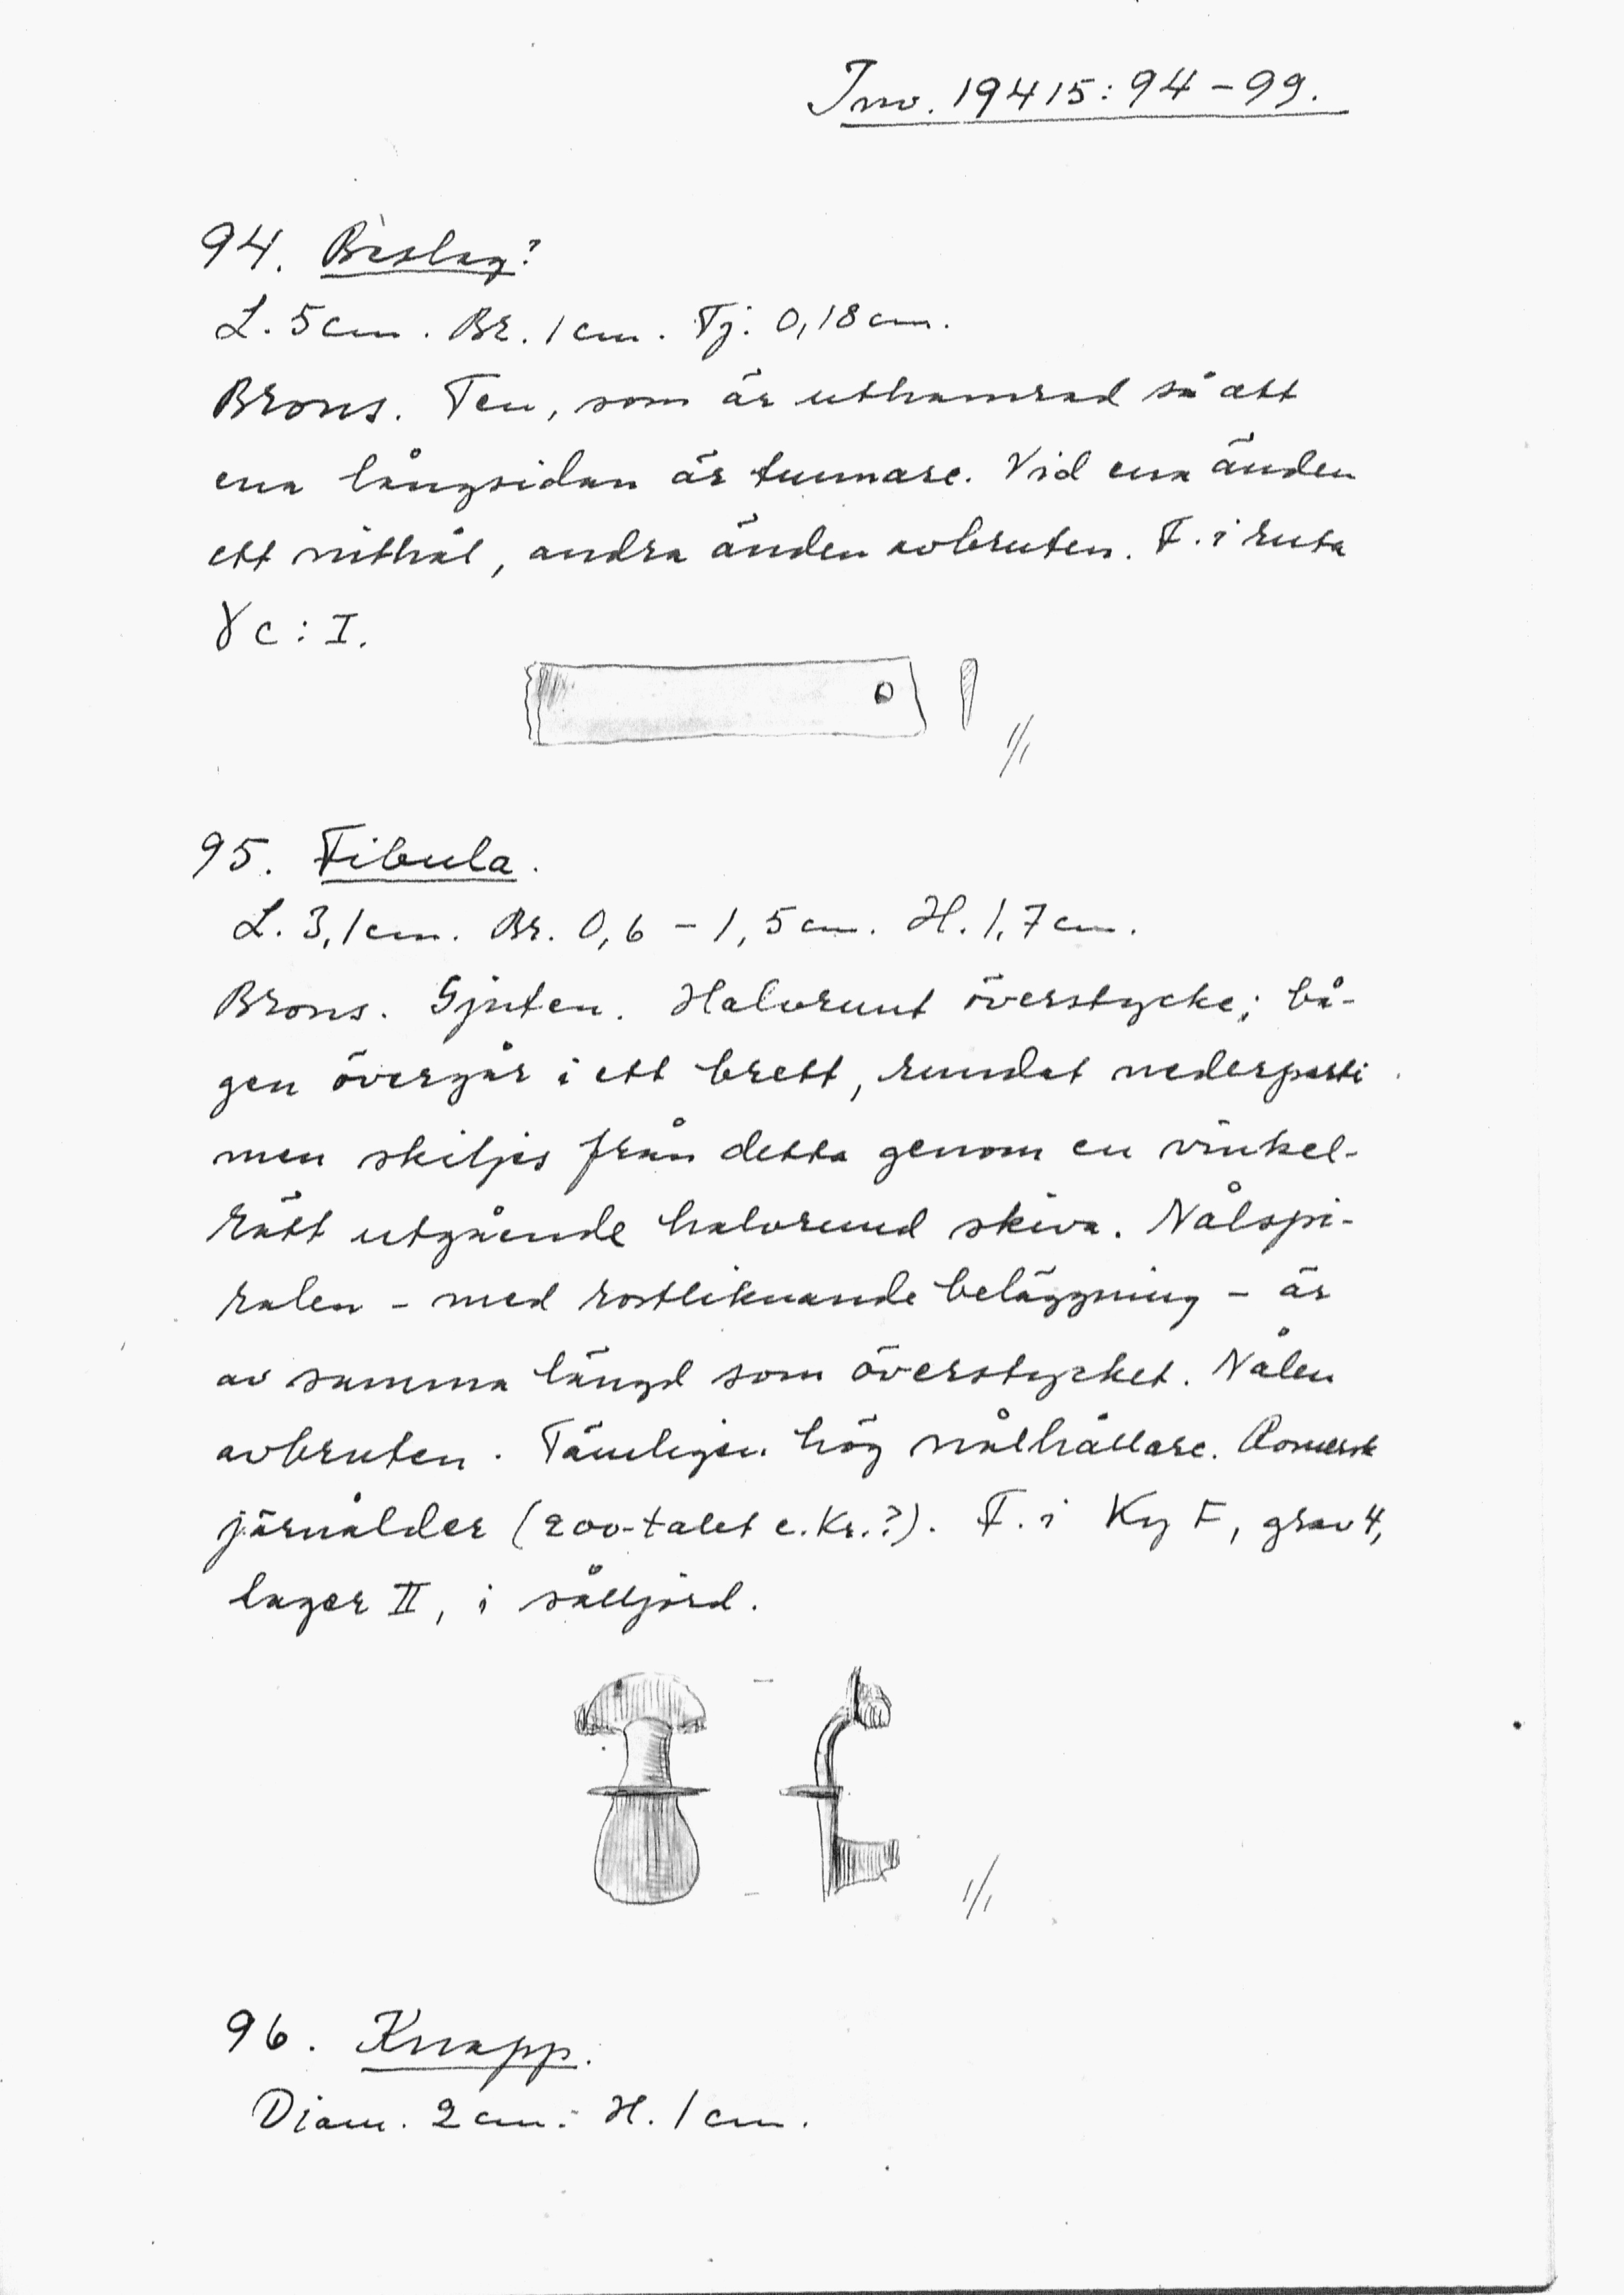 Inv. 19415: 94 – 99.
94. Beslag?
L. 5 cm. Br. 1 cm. Tj. 0,18 cm.
Brons. Ten, som är uthamrad så att
ena långsidan är tunnare. Vid ena änden
ett nithål, andra änden avbruten. F. i ruta
γ c : I.
1/1
95. Fibula.
L. 3,1 cm. Br. 0,6 – 1,5 cm. H. 1,7 cm.
Brons. Gjuten. Halvrunt överstycke; bå-
gen övergår i ett brett, rundat nederparti
men skiljes från detta genom en vinkel-
rätt utgående halvrund skiva. Nålspi-
ralen – med rostliknande beläggning – är
av samma längd som överstycket. Nålen
avbruten. Tämligen hög nålhållare. Romersk
järnålder (200-talet e.Kr.?). F. i Ky F, grav 4,
lager II, i sålljord.
1/1
96. Knapp.
Diam. 2 cm. H. 1 cm.